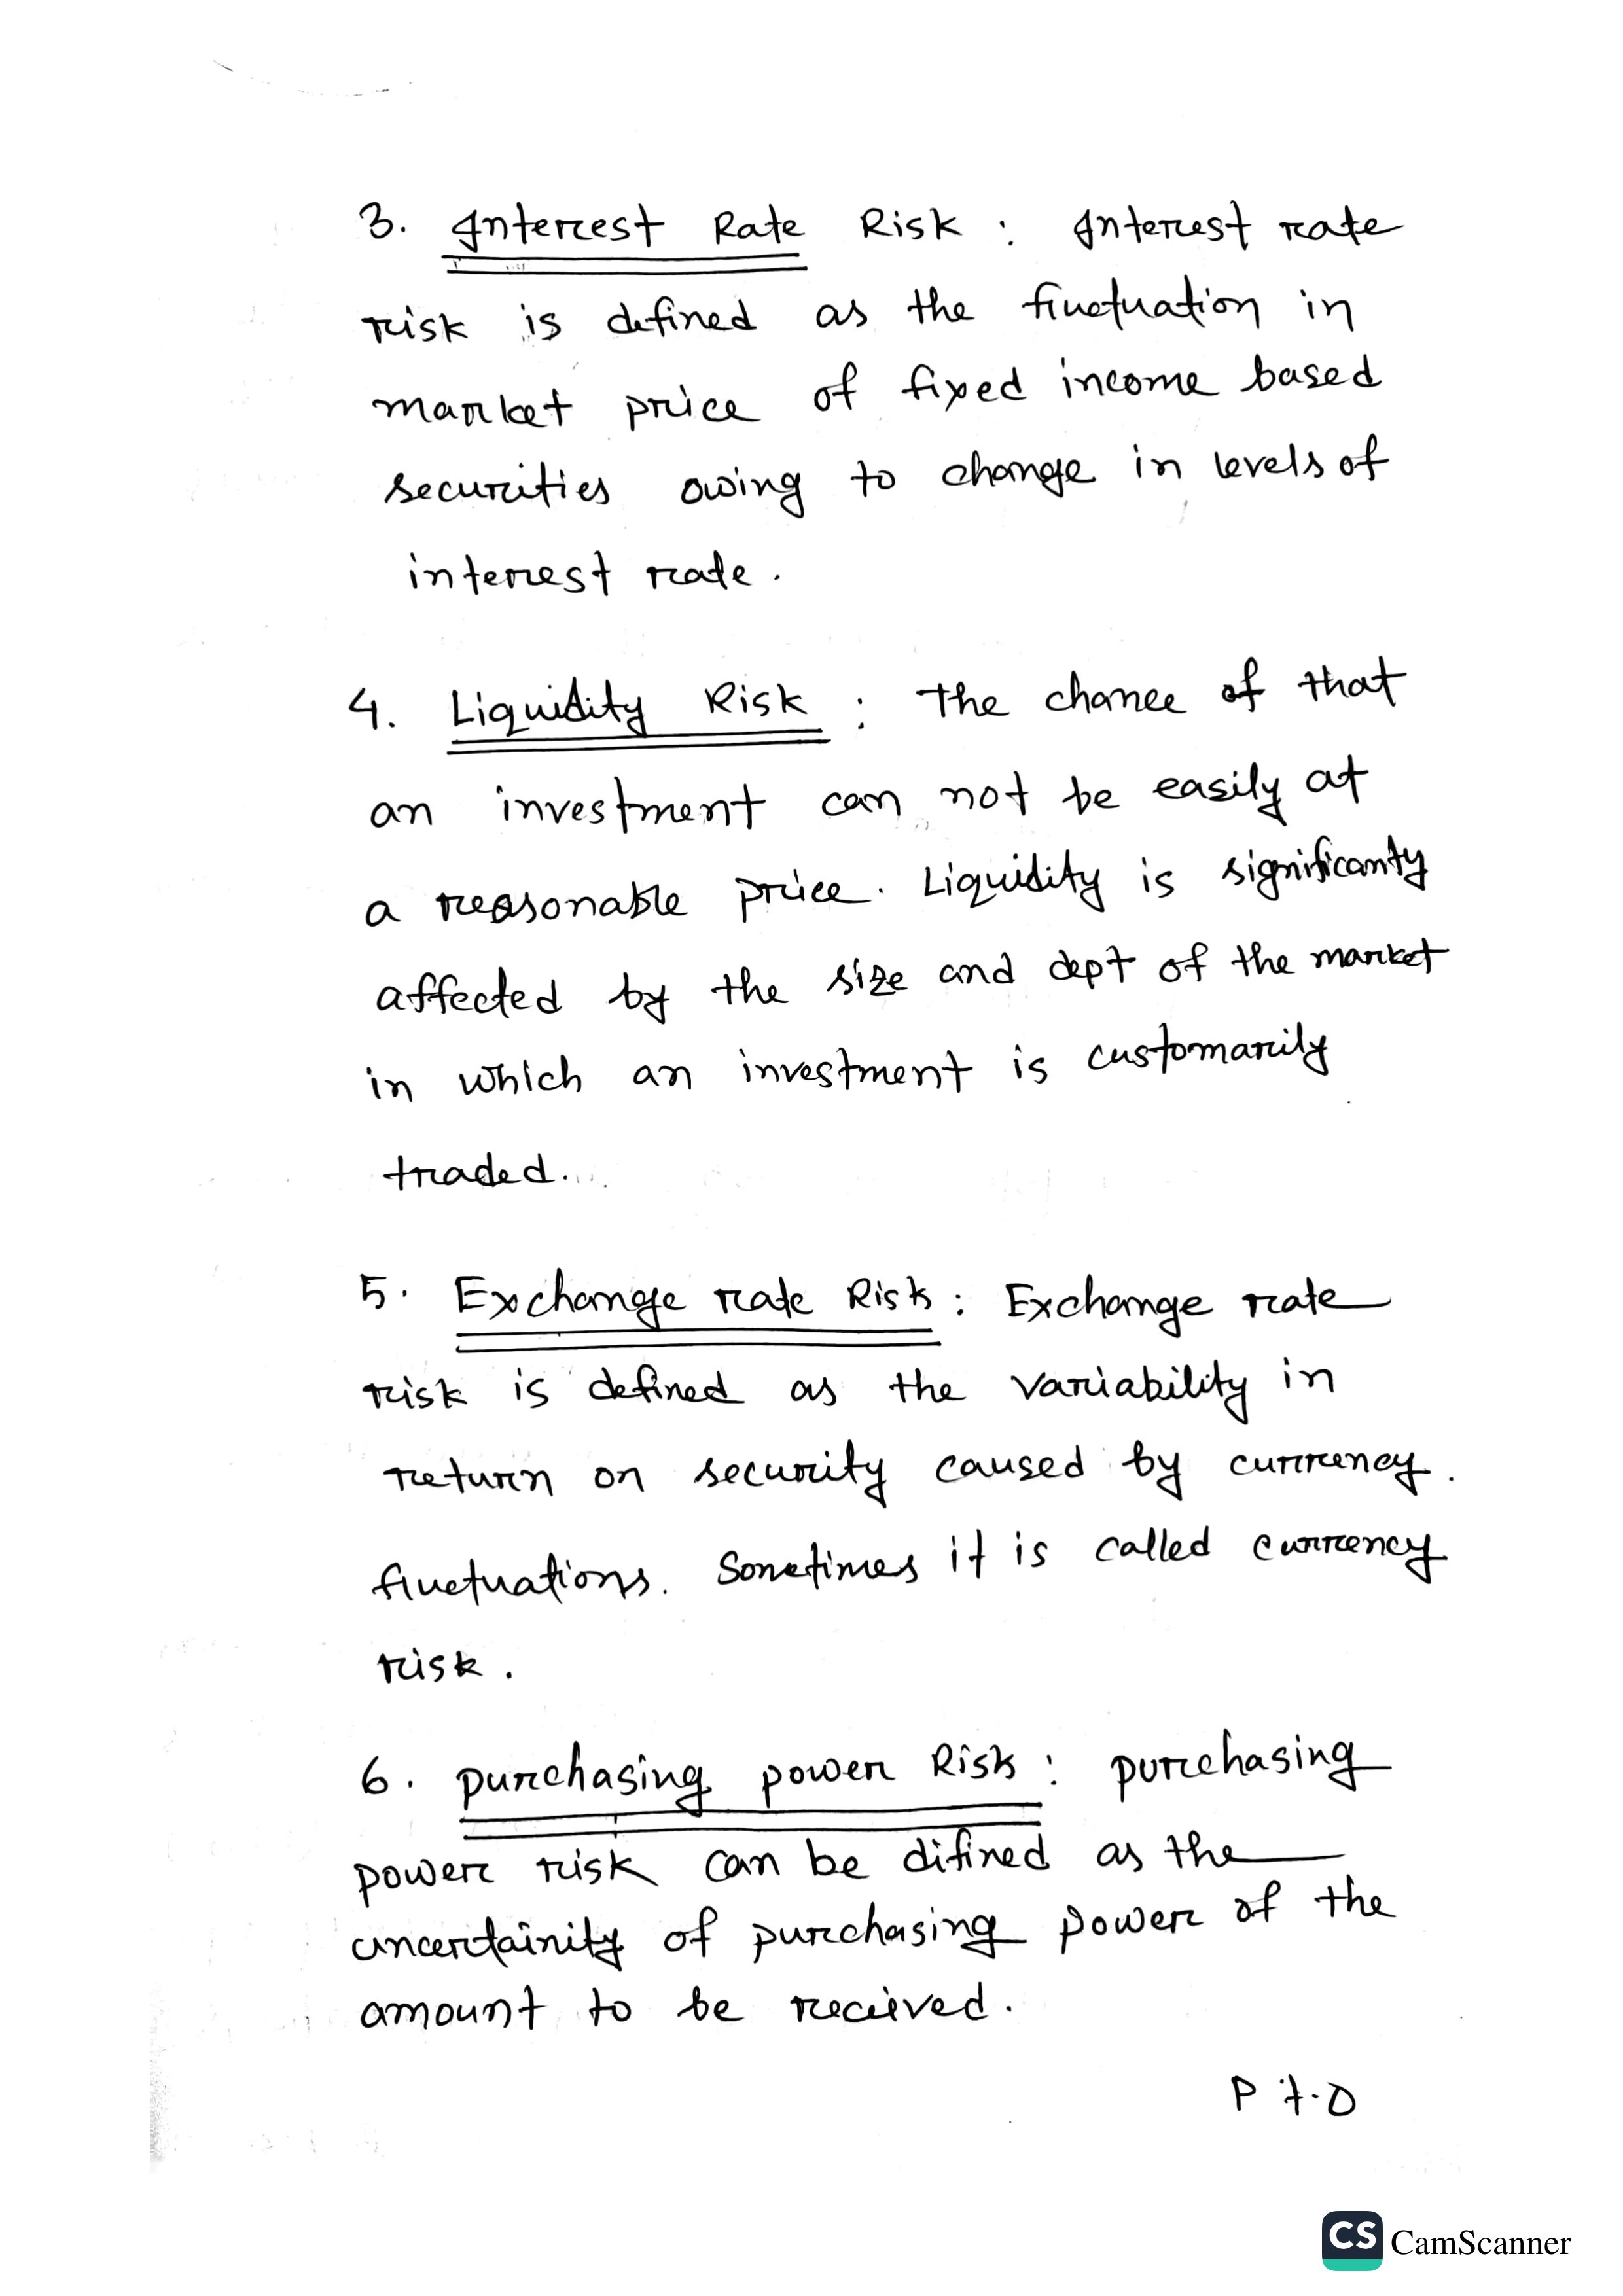 3. Interest Rate Risk : Interest rate
risk is defined as the fluctuation in
market price of fixed income based
securities owing to change in levels of
interest rate.
4. Liquidity Risk : The chance of that
an investment can not be easily at
a reasonable price. Liquidity is significanty
affected by the size and dept of the market
in which an investment is customarily
traded.
5. Exchange rate Risk : Exchange rate
risk is defined as the variability in
return on security caused by currency.
fluctuations. Sometimes it is called currency
risk.
6. purchasing power Risk : purchasing
power risk can be difined as the
uncertainity of purchasing power of the
amount to be recieved.
P T.O
CS CamScanner